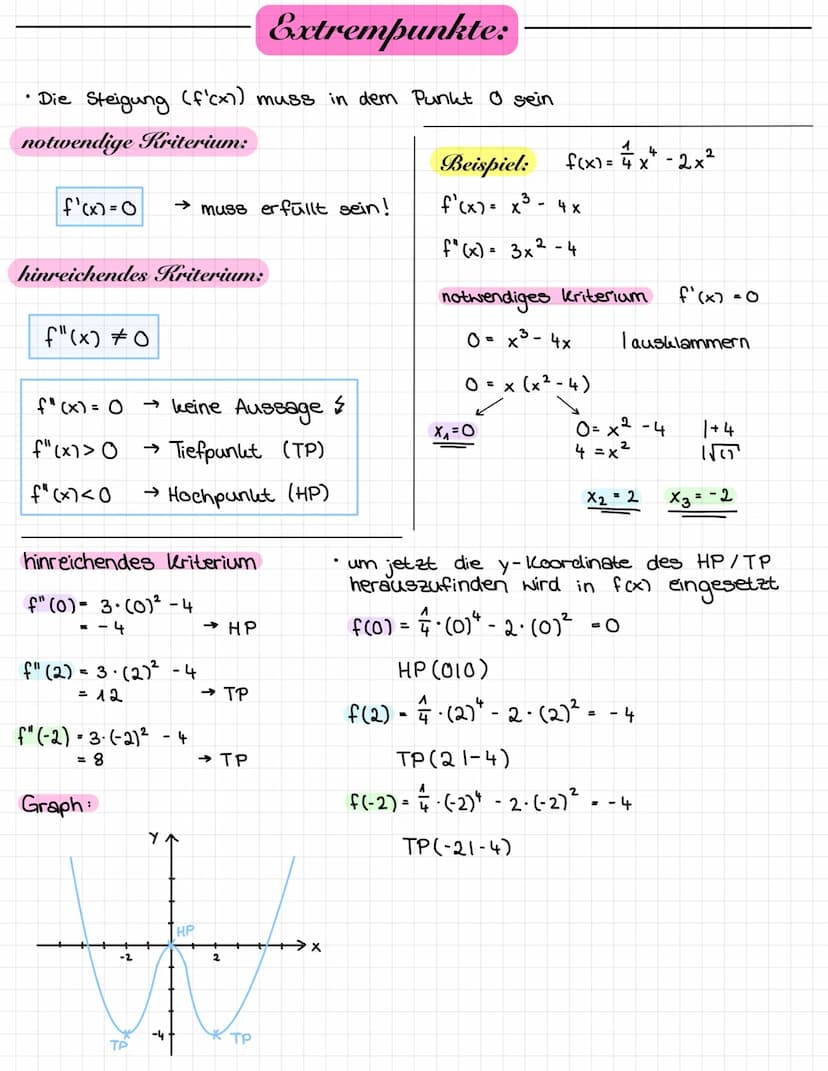 Extrempunkte:
· Die Steigung (f'(x)) muss in dem Punkt 0 sein
notwendige Kriterium:
f'(x) = 0 → muss erfüllt sein!
hinreichendes Kriterium:
f"(x) ≠ 0
f"(x) = 0 → keine Aussage ↯
f"(x) > 0 → Tiefpunkt (TP)
f"(x) < 0 → Hochpunkt (HP)
Beispiel: f(x) = 1/4 x⁴ - 2x²
f'(x) = x³ - 4x
f"(x) = 3x² - 4
notwendiges Kriterium f'(x) = 0
0 = x³ - 4x | ausklammern
0 = x (x² - 4)
x₁ = 0 0 = x² - 4 | + 4
4 = x² | √( )
x₂ = 2 x₃ = -2
hinreichendes Kriterium
f"(0) = 3 · (0)² - 4
= - 4 → HP
f"(2) = 3 · (2)² - 4
= 12 → TP
f"(-2) = 3 · (-2)² - 4
= 8 → TP
· um jetzt die y-Koordinate des HP/TP
herauszufinden wird in f(x) eingesetzt
f(0) = 1/4 · (0)⁴ - 2 · (0)² = 0
HP (0|0)
f(2) = 1/4 · (2)⁴ - 2 · (2)² = - 4
TP (2|-4)
f(-2) = 1/4 · (-2)⁴ - 2 · (-2)² = - 4
TP (-2|-4)
Graph:
Y
HP
X
-2 2
-4
TP TP